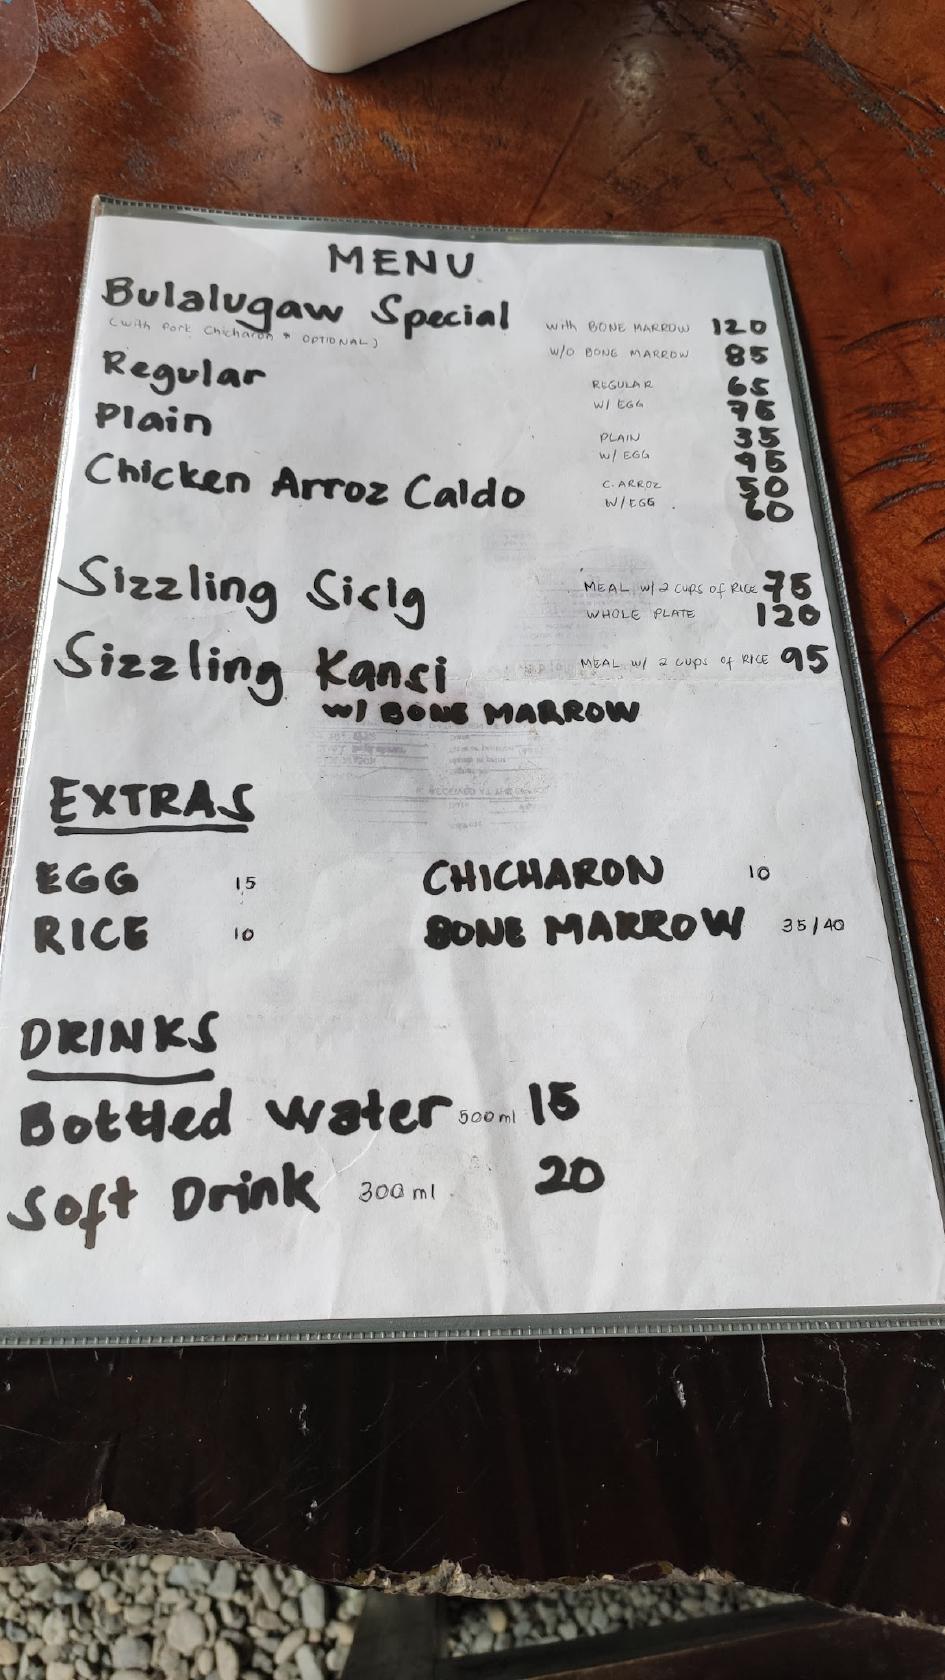 MENU
Bulalugaw Special with BONE MARROW 120
(with Pork Chicharon * OPTIONAL)
W/O BONE MARROW 85
Regular REGULAR 65
W/ EGG 75
Plain PLAIN 35
W/ EGG 45
Chicken Arroz Caldo C. ARROZ 50
W/ EGG 60
Sizzling Sisig MEAL w/ 2 cups of RICE 75
WHOLE PLATE 120
Sizzling Kansi MEAL w/ 2 cups of RICE 95
w/ BONE MARROW
EXTRAS
EGG 15 CHICHARON 10
RICE 10 BONE MARROW 35/40
DRINKS
Bottled Water 500ml 15
Soft Drink 300ml 20